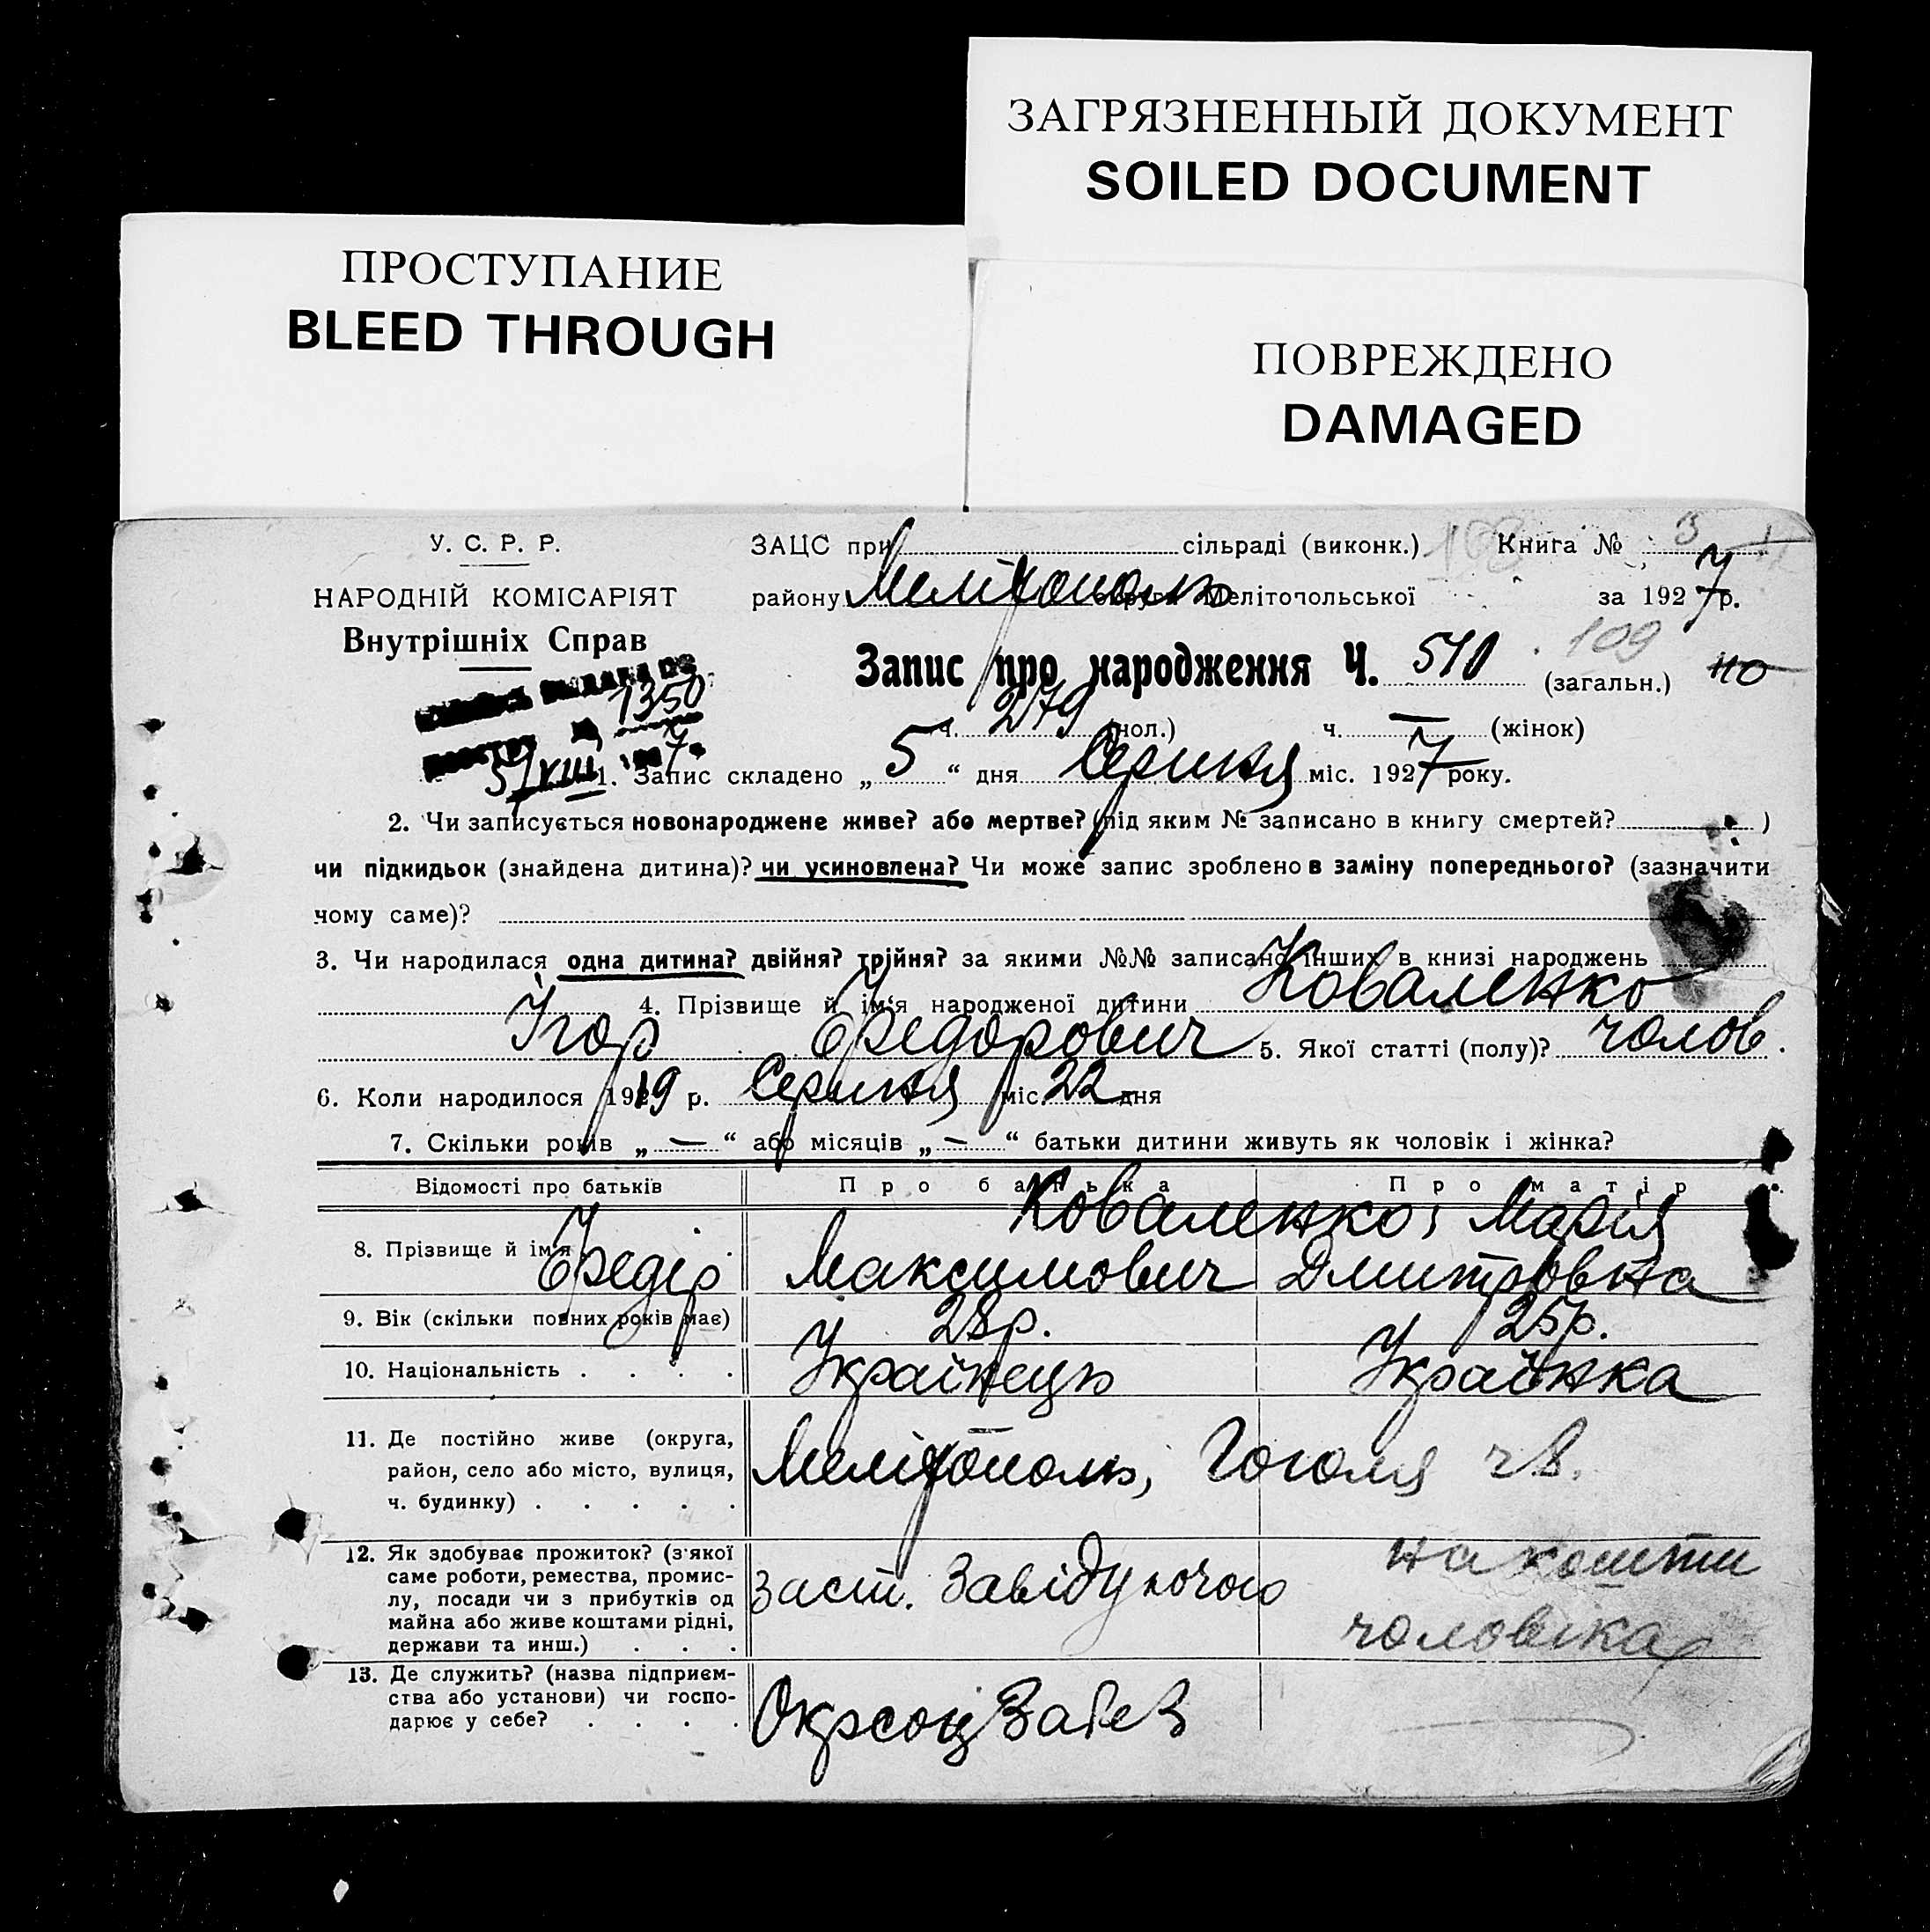 ЗАГРЯЗНЕННЫЙ ДОКУМЕНТ
SOILED DOCUMENT
ПРОСТУПАНИЕ
BLEED THROUGH
ПОВРЕЖДЕНО
DAMAGED
У. С. Р. Р.
НАРОДНІЙ КОМІСАРІЯТ
Внутрішніх Справ
1350
7
5/VIII
ЗАЦС при сільраді (виконк.) Книга № 3
району Мелітополь округи Мелітопольської за 1927 р.
Запис про народження Ч. 510 (загальн.) 109 110
ч. 279 (чол.) ч. — (жінок)
1. Запис складено „ 5 “ дня Серпня міс. 1927 року.
2. Чи записується новонароджене живе? або мертве? (під яким № записано в книгу смертей? )
чи підкидьок (знайдена дитина)? чи усиновлена? Чи може запис зроблено в заміну попереднього? (зазначити
чому саме)?
3. Чи народилася одна дитина? двійня? трійня? за якими №№ записано інших в книзі народжень
4. Прізвище й ім‘я народженої дитини Коваленко
Ігор Федорович 5. Якої статті (полу)? чолов.
6. Коли народилося 1919 р. Серпня міс. 22 дня
7. Скільки років „ — “ або місяців „ — “ батьки дитини живуть як чоловік і жінка?
Відомості про батьків Про батька Про матір
8. Прізвище й ім‘я Коваленко, Марія
Федір Максимович Дмитрівна
9. Вік (скільки повних років має) 28р. 25р.
10. Національність . . . . Українець Українка
11. Де постійно живе (округа,
район, село або місто, вулиця,
ч. будинку) . . . . .
Мелітополь, Гоголя
12. Як здобуває прожиток? (з‘якої
саме роботи, ремества, промис-
лу, посади чи з прибутків од
майна або живе коштами рідні,
держави та инш.) . . .
Заст. Завідуючого
на кошти
чоловіка
13. Де служить? (назва підприєм-
ства або установи) чи госпо-
дарює у себе? . . . .
ОкрсоцЗабез